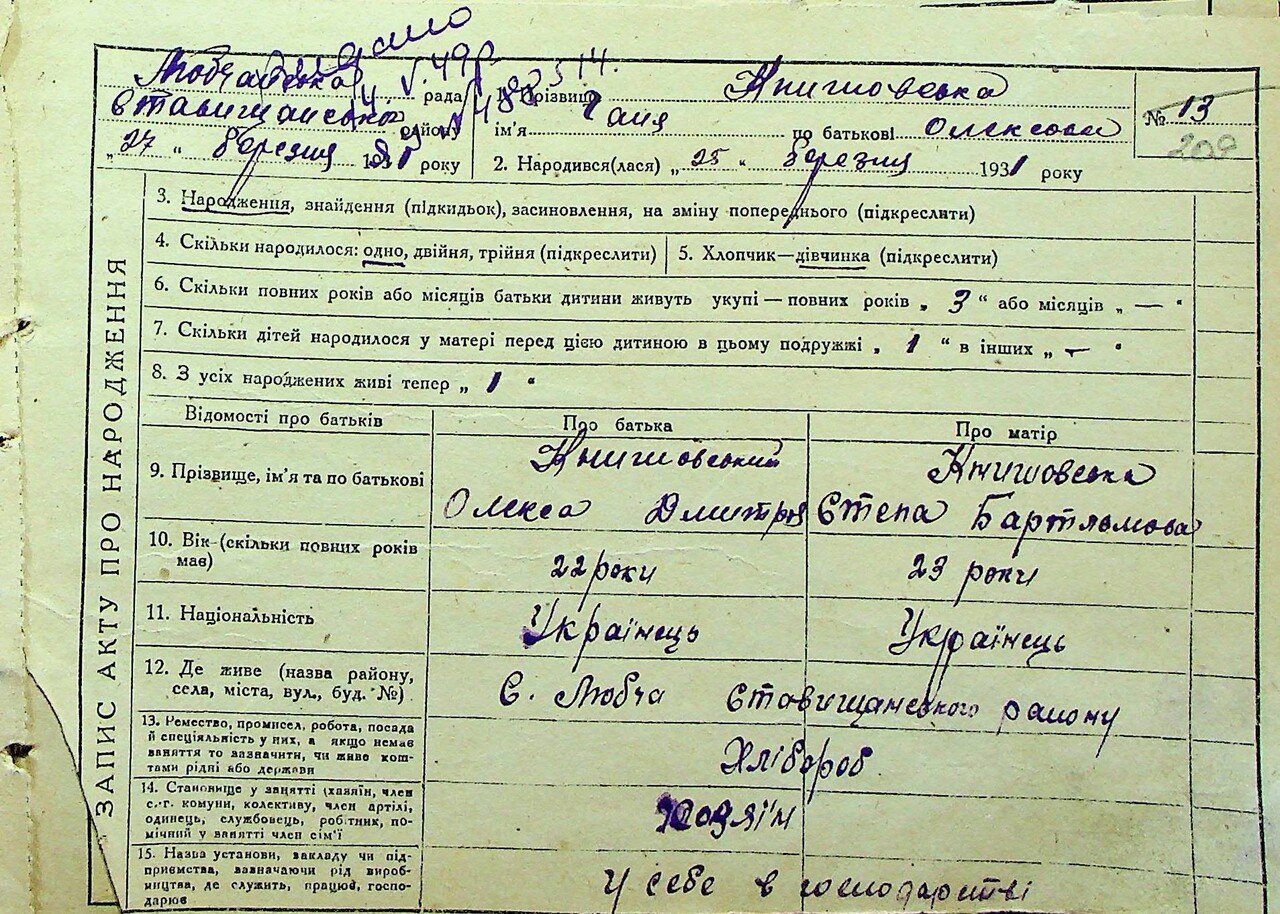 видано
V. 49р.
Любчанська рада
Ставищанський району
„27“ березня 1931 року
1. Прізвище Книшовська
ім'я Ганя по батькові Олексова
2. Народився(лася) „25“ березня 1931 року
№ 13
200
ЗАПИС АКТУ ПРО НАРОДЖЕННЯ
3. Народження, знайдення (підкидьок), засиновлення, на зміну попереднього (підкреслити)
4. Скільки народилося: одно, двійня, трійня (підкреслити)
5. Хлопчик—дівчинка (підкреслити)
6. Скільки повних років або місяців батьки дитини живуть укупі—повних років „ 3 “ або місяців „ — “
7. Скільки дітей народилося у матері перед цією дитиною в цьому подружжі „ 1 “ в інших „ — “
8. З усіх народжених живі тепер „ 1 “
Відомості про батьків
Про батька
Про матір
9. Прізвище, ім'я та по батькові
Книшовський
Олекса Дмитрів
Книшовська
Степа Бартломова
10. Вік (скільки повних років
має)
22 роки
23 роки
11. Національність
Українець
Українець
12. Де живе (назва району,
села, міста, вул., буд. №)
С. Любча Ставищанського району
13. Ремество, промисел, робота, посада
й спеціяльність у них, а якщо немає
заняття то зазначити, чи живе кош-
тами рідні або держави
Хлібороб
14. Становище у занятті (хазяїн, член
с.-г. комуни, колективу, член артілі,
одинець, службовець, робітник, по-
мічний у занятті член сім'ї
Хазяїн
15. Назва установи, закладу чи під-
приємства, зазначаючи рід вироб-
ництва, де служить, працює, госпо-
дарює
У себе в господарстві